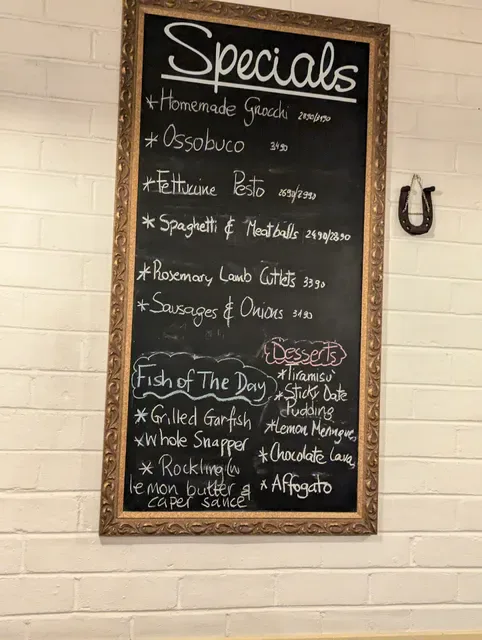 Specials
* Homemade Gnocchi
* Ossobuco 3490
* Fettucine Pesto 2690/2990
* Spaghetti & Meatballs 2490/2890
* Rosemary Lamb Cutlets 3390
* Sausages & Onions 3190
Fish of The Day
* Grilled Garfish
* Whole Snapper
* Rockling in
lemon butter &
caper sauce
Desserts
* Tiramisu
* Sticky Date
Pudding
* Lemon Meringue
* Chocolate Lava
* Affogato